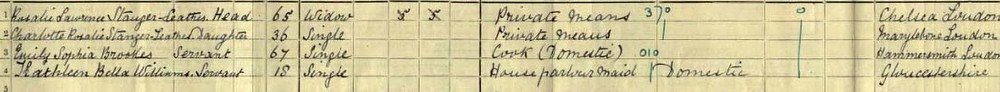 1 Rosalie Lawrence Stanger-Leathes Head 65 Widow 5 5 Private Means 370 0 Chelsea London
2 Charlotte Rosalie Stanger-Leathes Daughter 36 Single Private Means Marylebone London
3 Emily Sophia Brookes Servant 67 Single Cook (Domestic) 010 Hammersmith London
4 Kathleen Bella Williams Servant 18 Single House parlour maid Domestic Gloucestershire
5